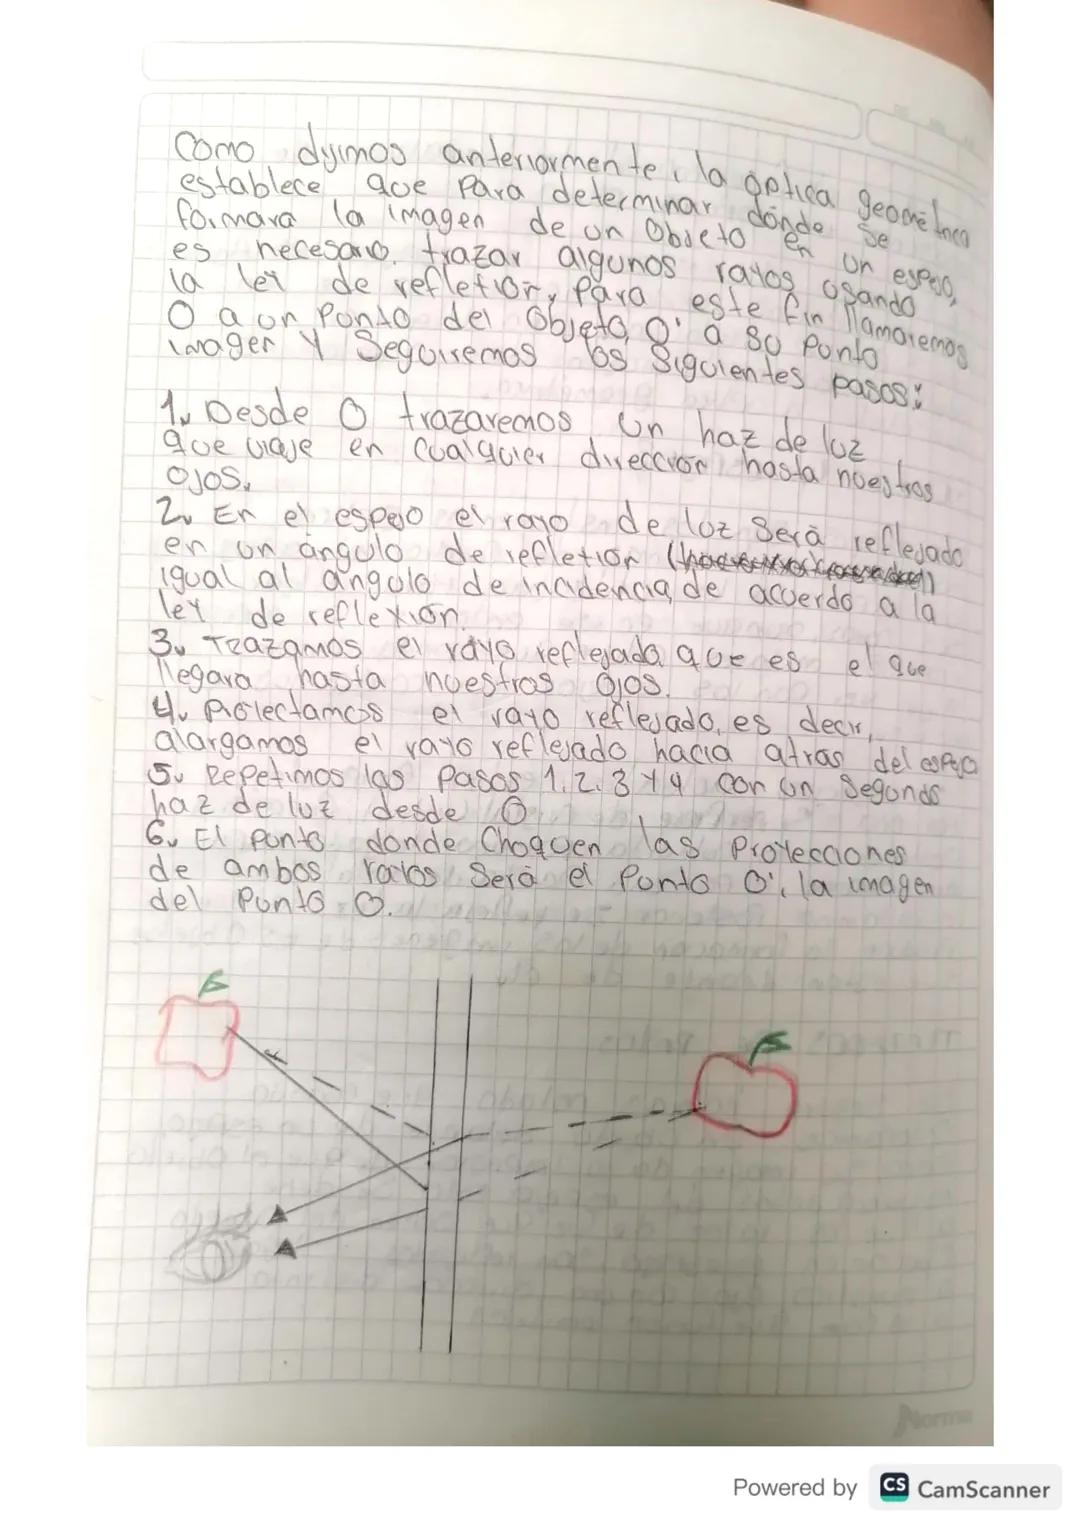 Como dijimos anteriormente, la óptica geométrica
establece que para determinar dónde se
formara la imagen de un Objeto en un espejo,
es necesario, trazar algunos rayos usando
la ley de reflexion, para este fin llamaremos
O a un Punto del objeto, O' a su punto
imagen y Seguiremos los Siguientes pasos:
1. Desde O trazaremos un haz de luz
que viaje en cualquier dirección hasta nuestros
ojos.
2. En el espejo el rayo de luz Será reflejado
en un ángulo de reflexion
igual al ángulo de incidencia, de acuerdo a la
ley de reflexión.
3. Trazamos el rayo reflejada que es el que
llegara hasta nuestros ojos.
4. Proyectamos el rayo reflejado, es decir,
alargamos el rayo reflejado hacia atras del espejo
5. Repetimos los pasos 1, 2, 3 y 4 con un Segundo
haz de luz desde O
6. El punto donde Choquen las Proyecciones
de ambos rayos Será el Punto O', la imagen
del Punto O.
Norma
Powered by CS CamScanner